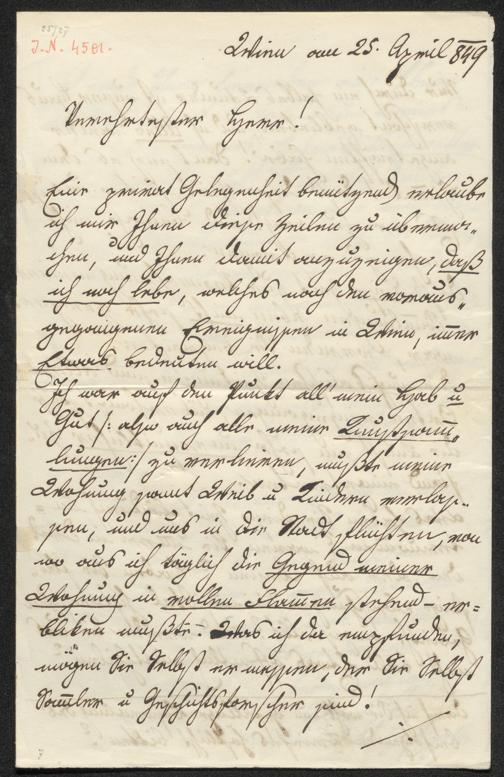 25/27
I. N. 4501.
Wien am 25. April 849
Verehrtester Herr!
Eine privat Gelegenheit benützend, erlaube
ich mir Ihnen diese Zeilen zu überma-
chen, und Ihnen damit anzuzeigen, daß
ich noch lebe, welches nach den voraus-
gegangenen Ereignissen in Wien, immer
Etwas bedeuten will.
Ich war auf den Punkt all' mein Hab u
Gut /: also auch alle meine Kunstsamm-
lungen :/ zu verlieren, mußte meine
Wohnung samt Weib u Kindern verlas-
sen, und uns in die Stadt flüchten, von
wo aus ich täglich die Gegend meiner
Wohnung in vollen Flammen stehend er-
bliken mußte. Was ich da empfunden,
mögen Sie Selbst ermessen, der Sie Selbst
Sammler u Geschichtsforscher sind!